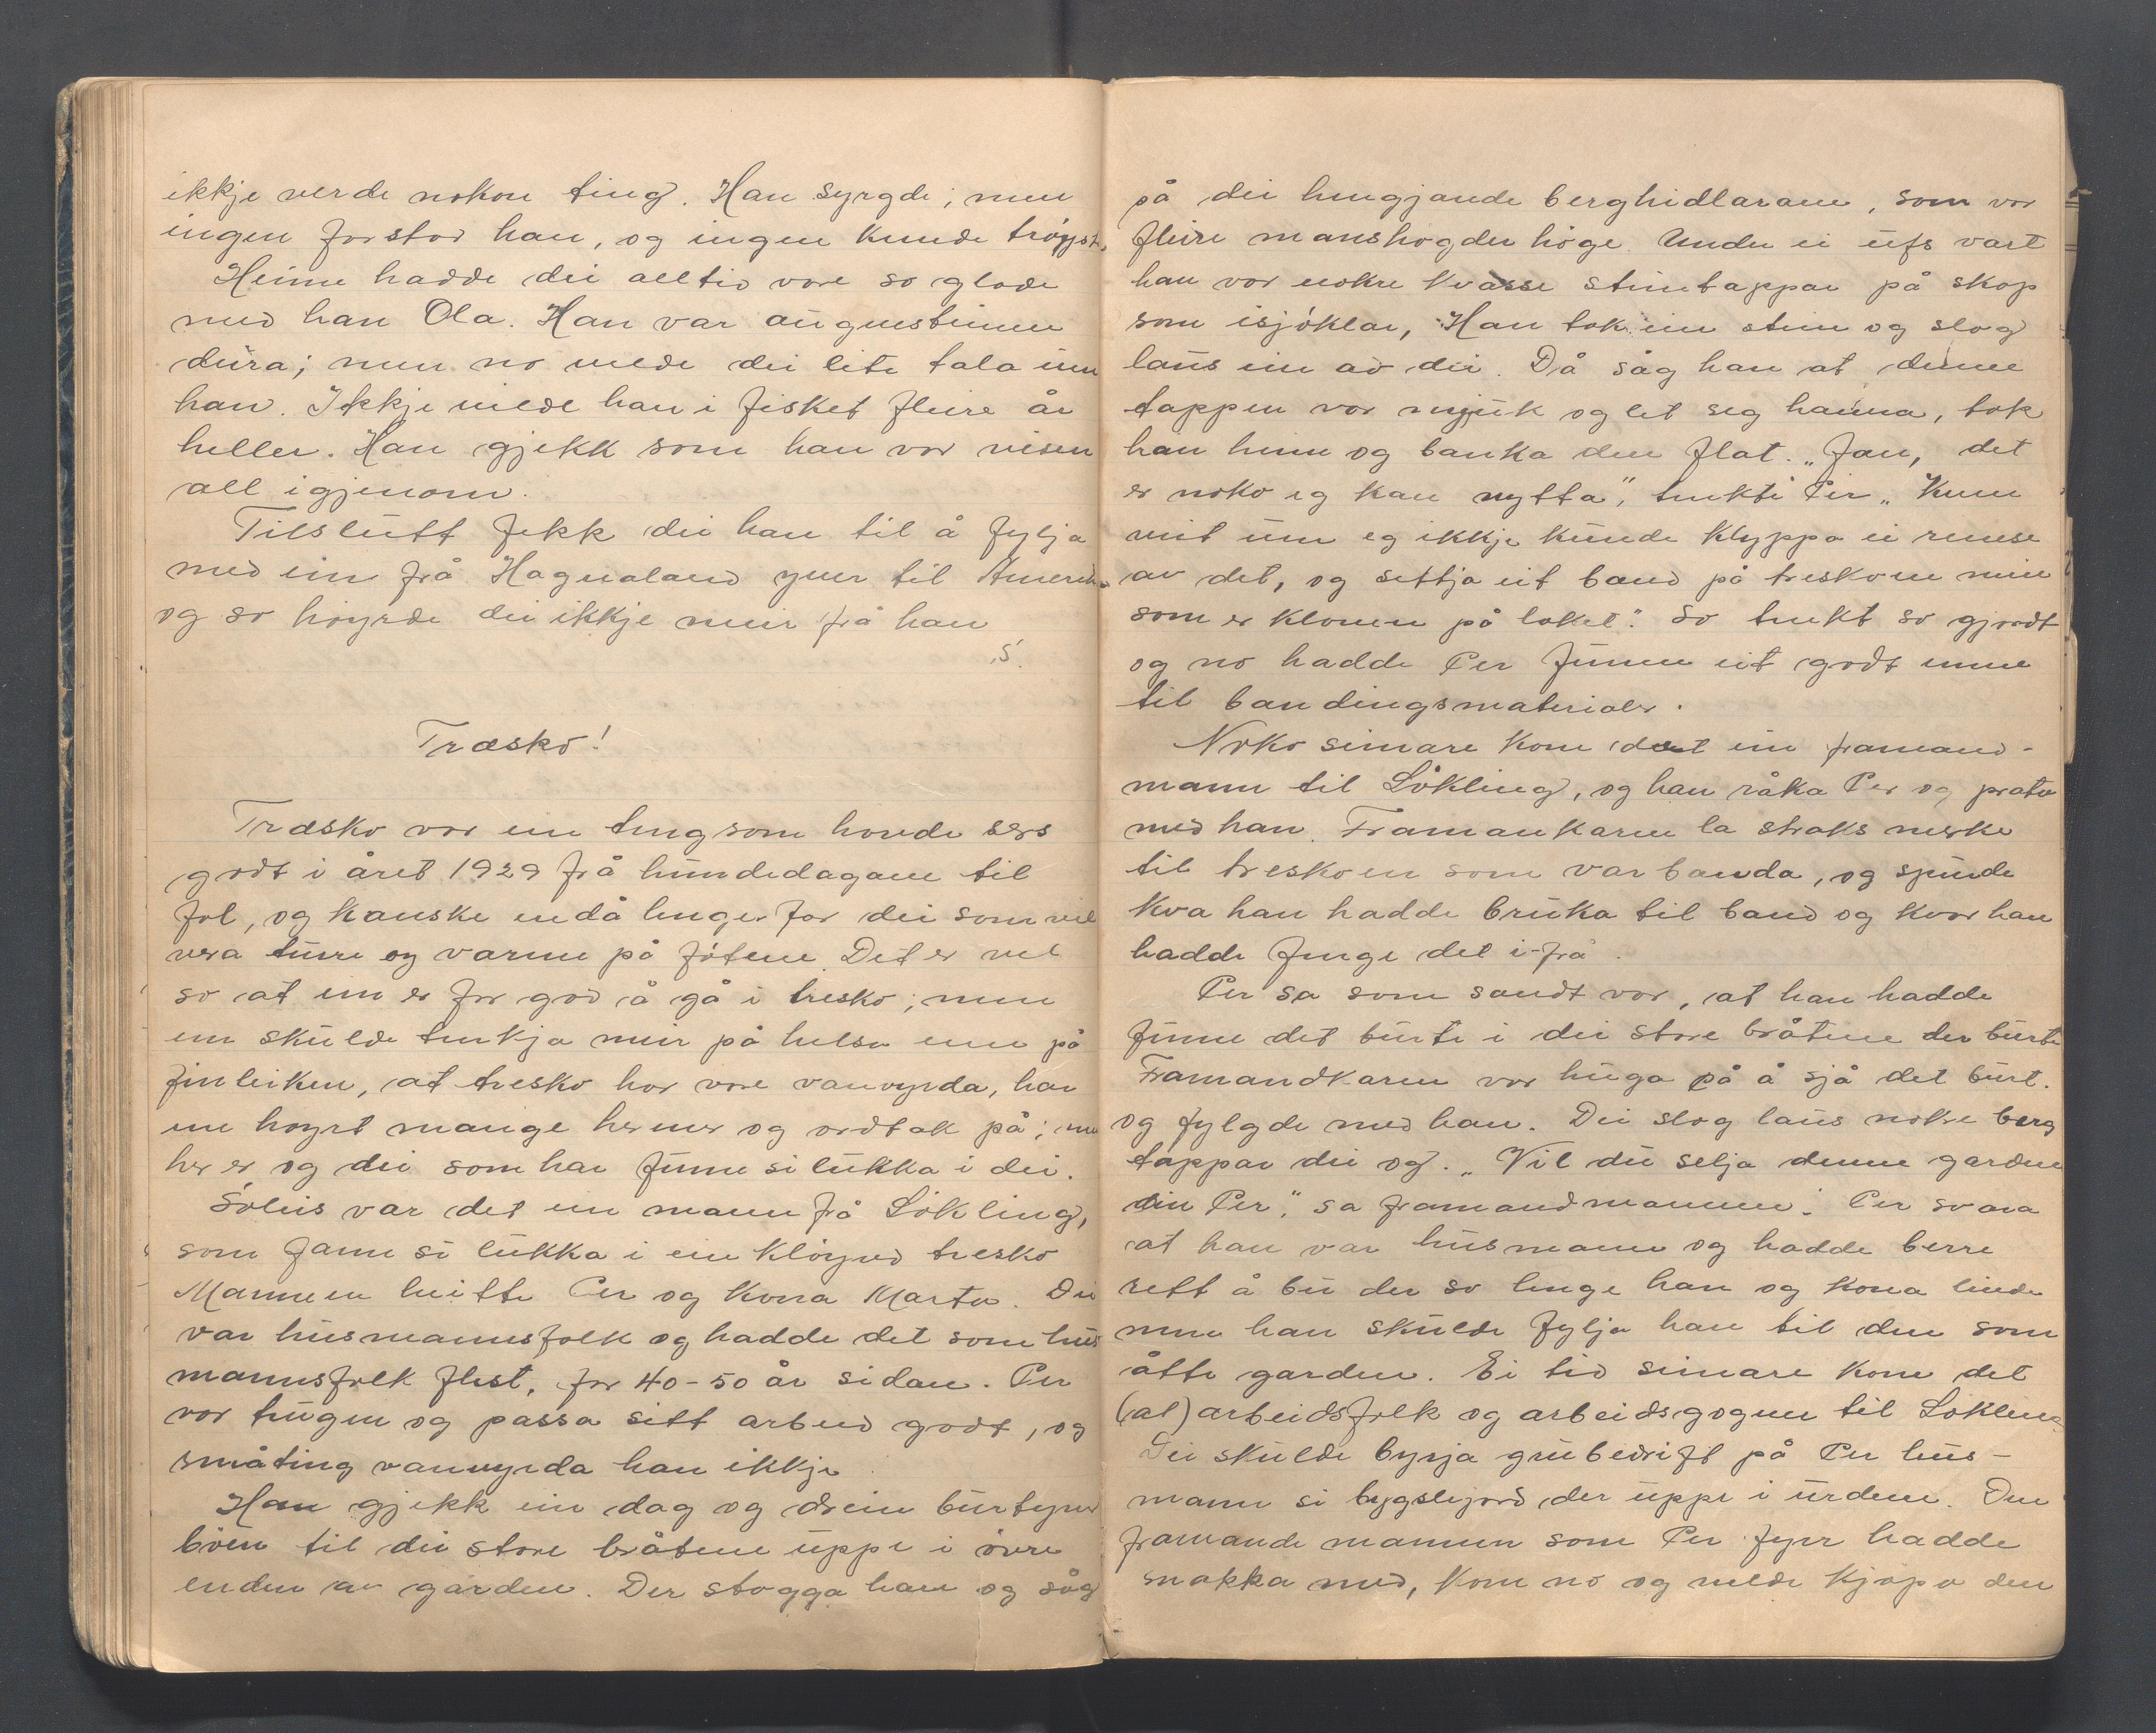 ikkje verde nokon ting. Han syrgde; men
ingen forstod han, og ingen kunde trøyst.
Heime hadde dei alltid vore so glade
med han Ola. Han var augnesteinen
deira; men no vilde dei lite tala um
han. Ikkje vilde han i fisket fleire år
heller. Han gjekk som han var visen
all igjenom.
Tilslutt fekk dei han til å fylja
med ein frå Hagnaland yver til Amerika
og so høyrde dei ikkje meir frå han
S.
Træsko!
Træsko var ein ting som hovde sers
godt i året 1929 frå hundedagane til
Jol, og kanske endå lenger for dei som vil
vera turre og varme på føtene. Det er vel
so at ein er for god å gå i tresko; men
ein skulde tenkja meir på helsa enn på
finleiken, at tresko har vore vanvyrda, har
me høyrt mange hermer og ordtak på; men
her er og dei som har funne si lukka i dei.
Soleis var det ein mann frå Løkling,
som fann si lukka i ein kløyvd tresko
Mannen heitte Per og kona Marta. Dei
var husmannsfolk og hadde det som hus
mannsfolk flest, for 40-50 år sidan. Per
var trugen og passa sitt arbeid godt, og
småting vanvyrda han ikkje.
Han gjekk ein dag og dreiv burtyver
bøen til dei store bråtene uppe i øvre
enden av garden. Der stogga han og såg
på dei hengjande berghidlarane, som var
fleire manshøgder høge. Under ei ufs vart
han var nokre kvasse steintappar på skap
som isjøklar, Han tok ein stein og slog
laus ein av dei. Då såg han at denne
tappen var mjuk og let seg hamra, tok
han heim og banka den flat. "Jau, det
er noko eg kan nytta", tenkte Per "Kven
veit um eg ikkje kunde klyppa ei reimse
av det, og settja eit band på treskoen min
som er kloven på loket." So tenkt so gjordt
og no hadde Per funne eit godt emne
til bandingsmaterialer.
Noko seinare kom det ein framand-
mann til Løkling, og han råka Per og prata
med han. Framankaren la straks merke
til treskoen som var banda, og spurde
kva han hadde bruka til band og kvar han
hadde fenge det i-frå.
Per sa som sandt var, at han hadde
funne det burte i dei store bråtene der burte
Framandkaren var huga på å sjå det burt.
og fylgde med han. Dei slog laus nokre berg
tappar dei og. "Vil du selja denne garden
din Per", sa framandmannen. Per svara
at han var husmann og hadde berre
rett å bu der so lenge han og kona livde
men han skulde fylja han til den som
åtte garden. Ei tid seinare kom det
(at) arbeidsfolk og arbeidsgogner til Løkling
Dei skulde byrja grubedrift på Per hus-
mann si bygslejord der uppe i urdene. Den
framande mannen som Per fyrr hadde
snakka med, kom no og vilde kjøpa den